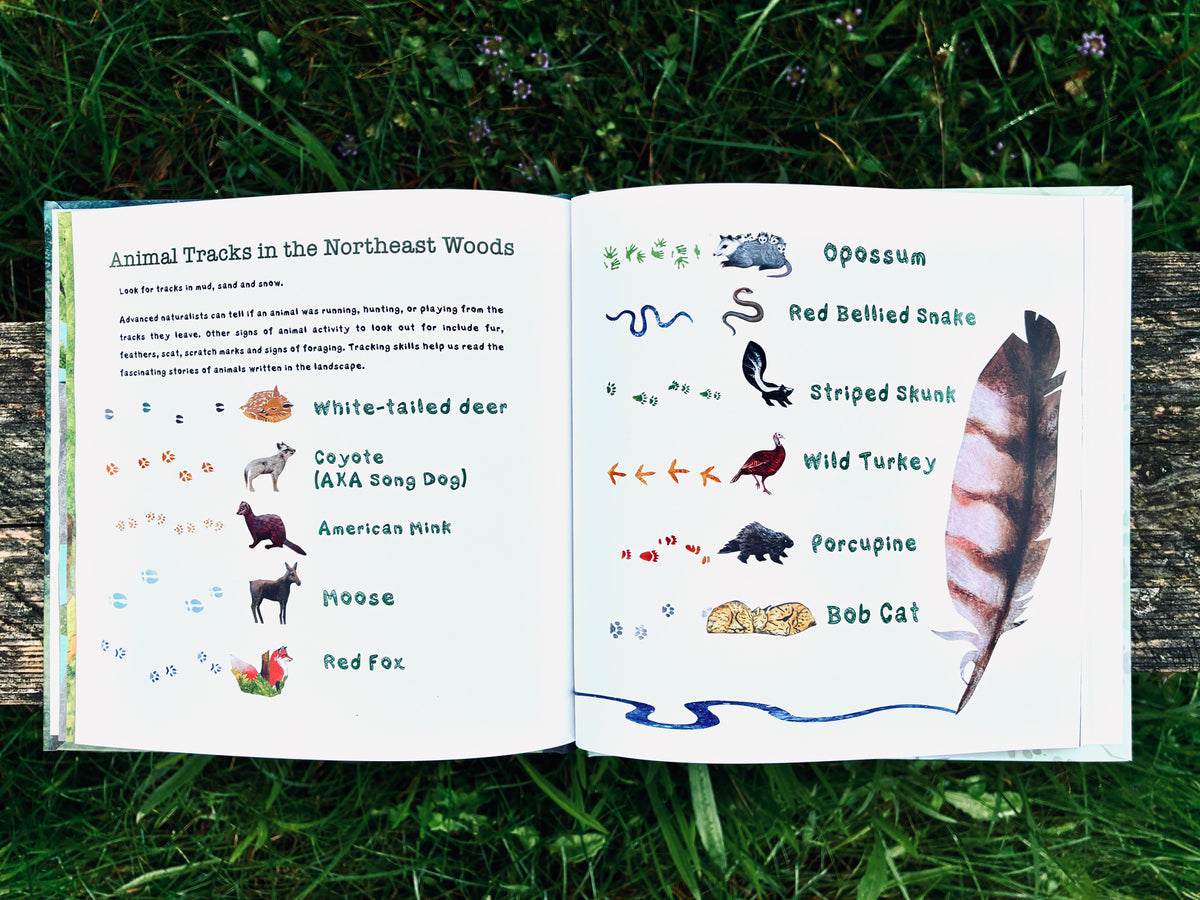 Animal Tracks in the Northeast Woods
Look for tracks in mud, sand and snow.
Advanced naturalists can tell if an animal was running, hunting, or playing from the
tracks they leave. Other signs of animal activity to look out for include fur,
feathers, scat, scratch marks and signs of foraging. Tracking skills help us read the
fascinating stories of animals written in the landscape.
White-tailed deer
Coyote
(AKA Song Dog)
American Mink
Moose
Red Fox
Opossum
Red Bellied Snake
Striped Skunk
Wild Turkey
Porcupine
Bob Cat